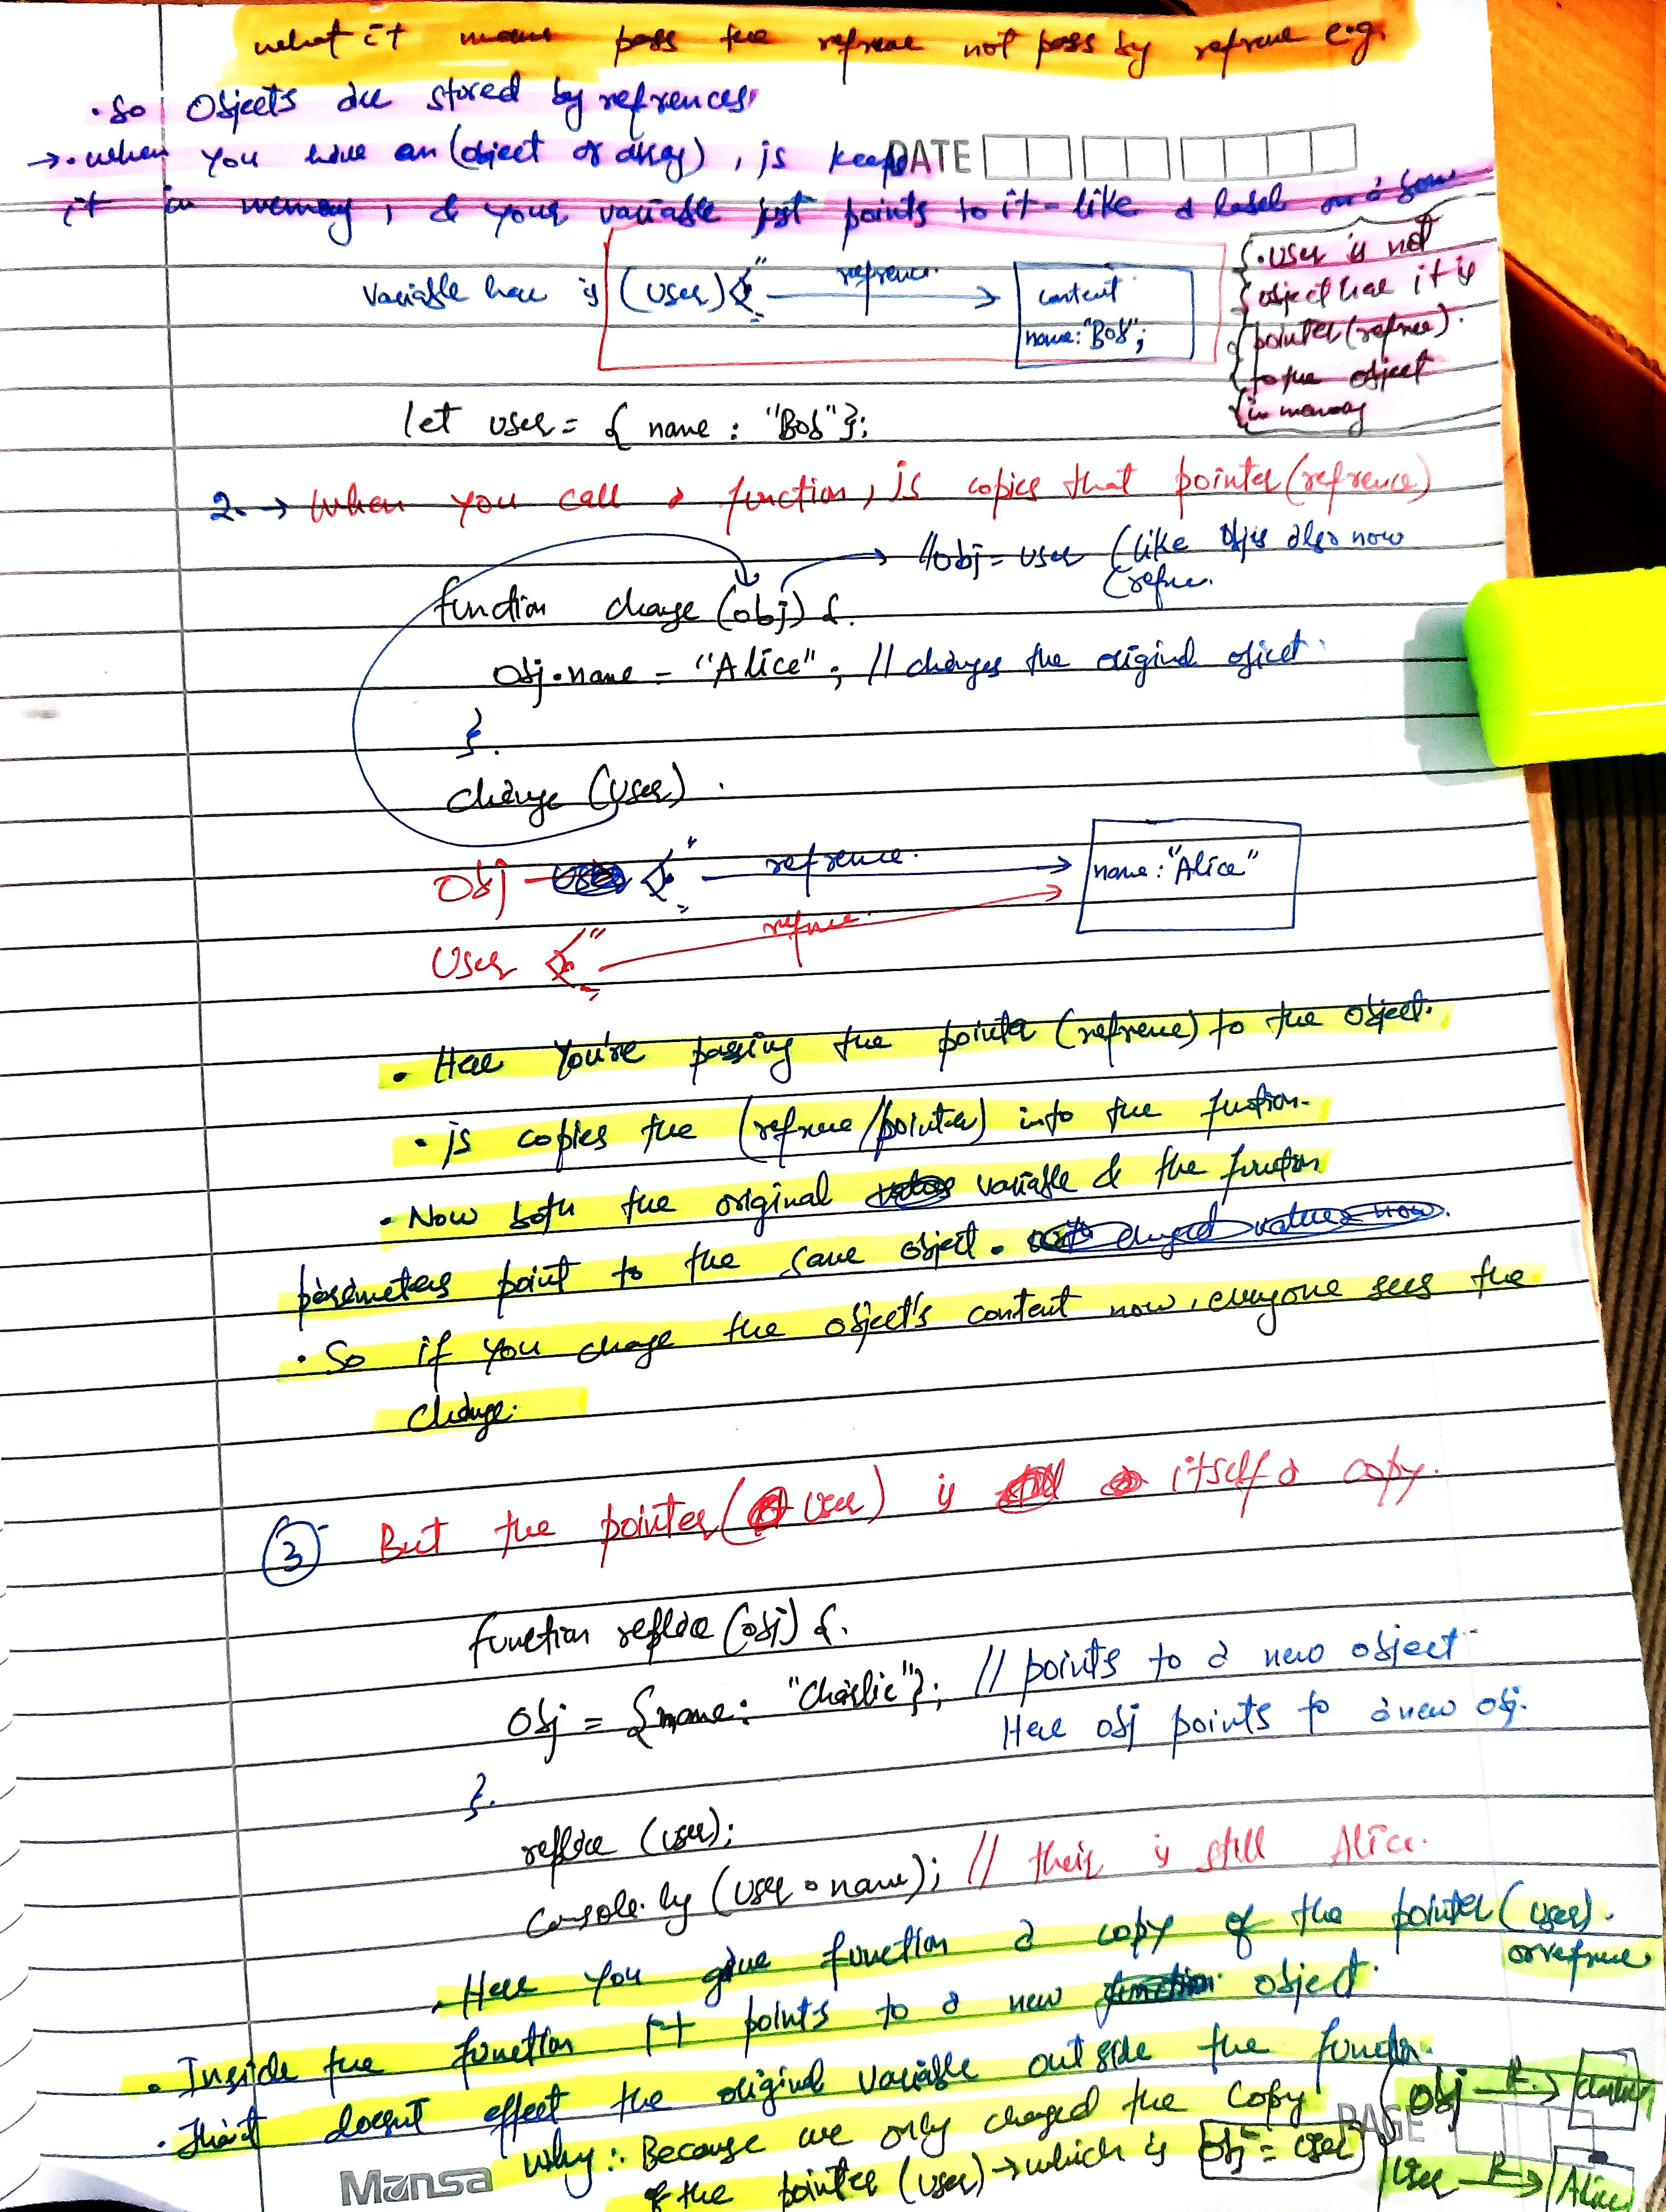 what it means pass the refrence not pass by refrence e.g.
• So Objects are stored by refrences
→ • when you have an (object or array), js keeps
DATE
it in memory, & your variable just points to it - like a label on a box
variable here is (user) refrence → content
name: "Bob";
• User is not
object here it is
pointer (refrence).
to the object
in memory
let user = { name : "Bob" };
2. → When you call a function, js copies that pointer (refrence)
→ // obj = user (like obj is also now
(refrence.
function change (obj) {
obj.name = "Alice" ; // changes the original object.
}
change (user)
Obj refrence. → name: "Alice"
User refrence.
• Here You're passing the pointer (refrence) to the object.
• js copies the (refrence/pointer) into the function.
• Now both the original variable & the function
parameters point to the same object.
• So if you change the object's content now, everyone sees the
change.
3 But the pointer (user) is itself a copy.
function replace (obj) {
Obj = {name: "Charlie"}; // points to a new object
Here obj points to a new obj.
}.
replace (user);
console.log (user.name); // their is still Alice.
• Here you give function a copy of the pointer (user).
or refrence
• Inside the function it points to a new object.
• That doesnt effect the original variable outside the function.
Why: Because we only changed the copy
of the pointer (user) → which is obj = user
Obj R. → Charlie
User R → Alice
PAGE
Mansa